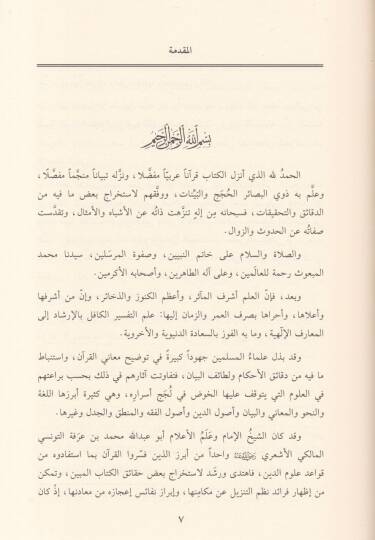 المقدمة
بسم الله الرحمن الرحيم
الحمدُ لله الذي أنزل الكتاب قرآناً عربيّاً مفضَّلا، ونزَّله تبياناً منجَّماً مفصَّلًا،
وعلَّم به ذوي البصائر الحُجَج والبَيِّنات، ووفَّقهم لاستخراج بعض ما فيه من
الدقائق والتحقيقات، فسبحانه مِن إلهٍ تنزَّهت ذاتُه عن الأشباه والأمثال، وتقدَّست
صفاتُه عن الحدوث والزوال.
والصلاة والسلام على خاتم النبيين، وصفوة المرسَلين، سيدنا محمد
المبعوث رحمة للعالَمين، وعلى آله الطاهرين، وأصحابه الأكرمين.
وبعد، فإنّ العلم أشرف المآثر، وأعظم الكنوز والذخائر، وإنّ من أشرفها
وأعلاها، وأحراها بصرف العمر والزمان إليها: علم التفسير الكافل بالإرشاد إلى
المعارف الإلٰهية، وما به الفوز بالسعادة الدنيوية والأخروية.
وقد بذل علماءُ المسلمين جهوداً كبيرةً في توضيح معاني القرآن، واستنباط
ما فيه من دقائق الأحكام ولطائف البيان، فتفاوتت آثارهم في ذلك بحسب براعتهم
في العلوم التي يتوقف عليها الخوض في لُجَج أسراره، وهي كثيرة أبرزها اللغة
والنحو والمعاني والبيان وأصول الدين وأصول الفقه والمنطق والجدل وغيرها.
وقد كان الشيخُ الإمام وعَلَمُ الأعلام أبو عبدالله محمد بن عرَفة التونسي
المالكي الأشعري واحداً من أبرز الذين فسّروا القرآن بما استفادوه من
قواعد علوم الدين، فاهتدى ورشَد لاستخراج بعض حقائق الكتاب المبين، وتمكن
من إظهار فرائد نظم التنزيل عن مكامِنها، وإبراز نفائس إعجازه من معادنها، إذْ كان
٧